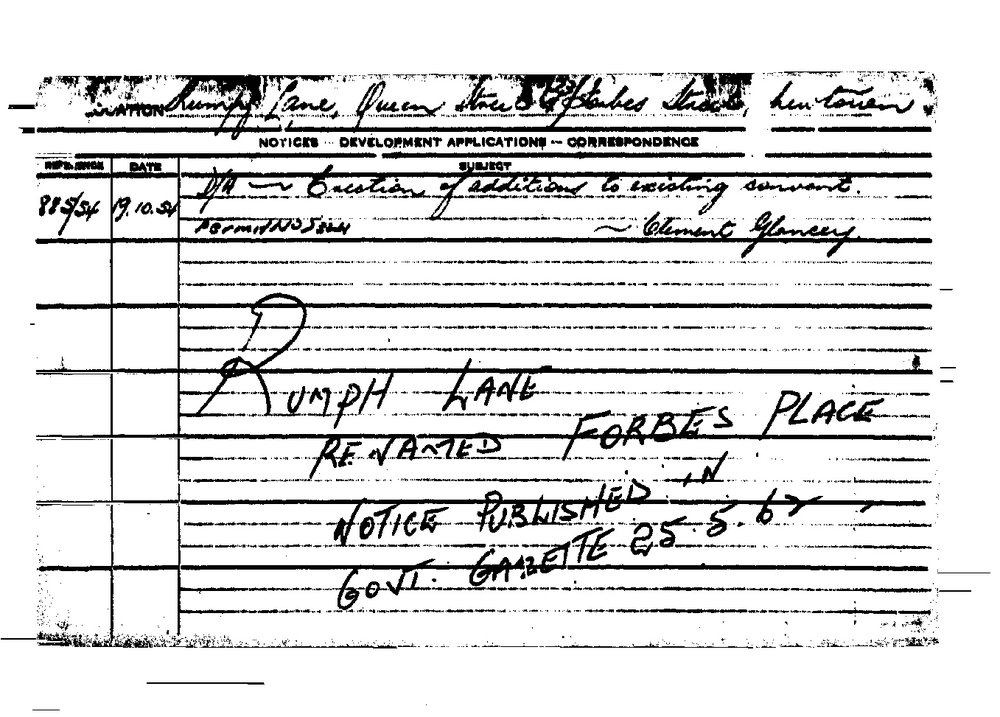 LOCATION Lane, Queen Street & Forbes Street, Newtown
NOTICES - DEVELOPMENT APPLICATIONS - CORRESPONDENCE
REFERENCE DATE SUBJECT
885/54 19.10.54 D/A - Erection of additions to existing convent.
Permit No - Clement Glancey.
RUMPH LANE
RENAMED FORBES PLACE
NOTICE PUBLISHED IN
GOVT. GAZETTE 25.5.62